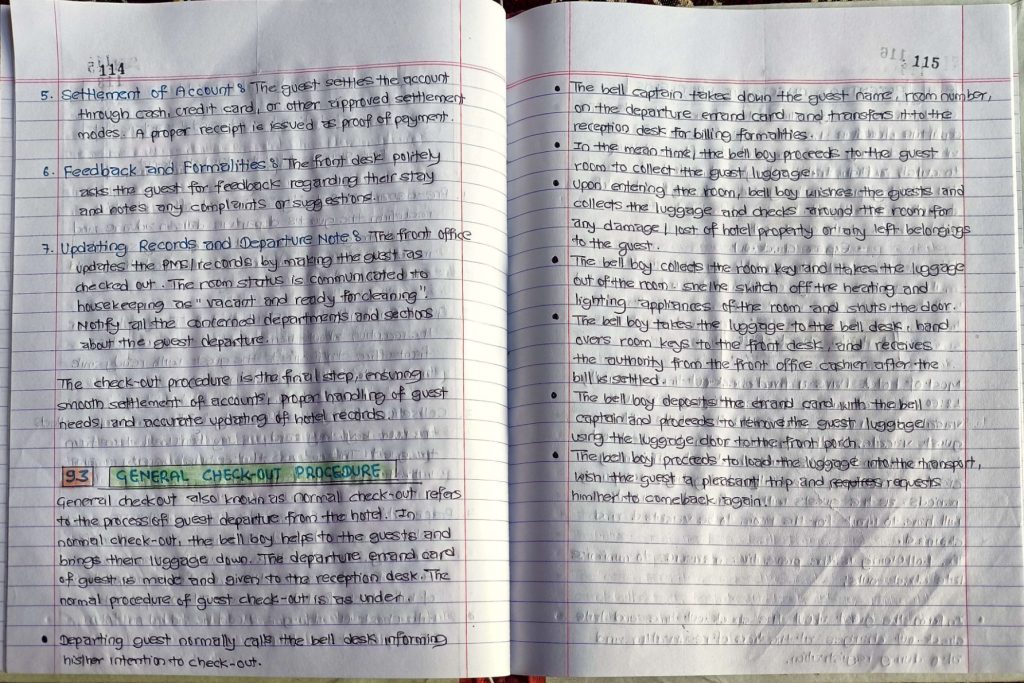 114
5. Settlement of Account : The guest settles the account
through cash, credit card, or other approved settlement
modes. A proper receipt is issued as proof of payment.
6. Feedback and Formalities : The front desk politely
asks the guest for feedback regarding their stay
and notes any complaints or suggestions.
7. Updating Records and Departure Note : The front office
updates the PMS/records by making the guest as
checked out. The room status is communicated to
housekeeping as "vacant and ready for cleaning".
Notify all the concerned departments and sections
about the guest departure.
The check-out procedure is the final step, ensuring
smooth settlement of accounts, proper handling of guest
needs, and accurate updating of hotel records.
9.3 GENERAL CHECK-OUT PROCEDURE
General checkout also known as normal check-out refers
to the process of guest departure from the hotel. In
normal check-out, the bell boy helps to the guests and
brings their luggage down. The departure errand card
of guest is made and given to the reception desk. The
normal procedure of guest check-out is as under.
• Departing guest normally calls the bell desk informing
his/her intention to check-out.
115
• The bell captain takes down the guest name, room number,
on the departure errand card and transfers it to the
reception desk for billing formalities.
• In the mean time, the bell boy proceeds to the guest
room to collect the guest luggage
• Upon entering the room, bell boy wishes the guests and
collects the luggage and checks around the room for
any damage, lost of hotel property or any left belongings
to the guest.
• The bell boy collects the room key and takes the luggage
out of the room. she/he switch off the heating and
lighting appliances of the room and shuts the door.
• The bell boy takes the luggage to the bell desk, hand
overs room keys to the front desk, and receives
the authority from the front office cashier after the
bill is settled.
• The bell boy deposits the errand card with the bell
captain and proceeds to remove the guest luggage
using the luggage door to the front porch.
• The bell boy proceeds to load the luggage into the transport,
wish the guest a pleasant trip and requires requests
him/her to comeback again.